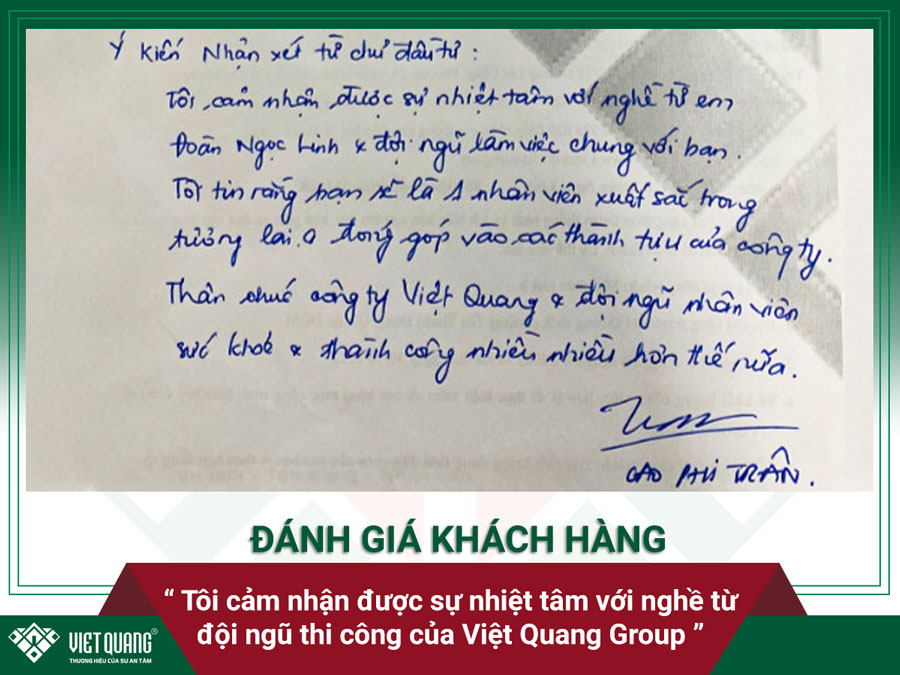 Ý kiến Nhận xét từ chủ đầu tư:
Tôi cảm nhận được sự nhiệt tâm với nghề từ em
Đoàn Ngọc Linh & đội ngũ làm việc chung với bạn.
Tôi tin rằng bạn sẽ là 1 nhân viên xuất sắc trong
tương lai & đóng góp vào các thành tựu của công ty.
Thân chúc công ty Việt Quang & đội ngũ nhân viên
sức khoẻ & thành công nhiều nhiều hơn thế nữa.
CAO PHI TRÂN.
ĐÁNH GIÁ KHÁCH HÀNG
“ Tôi cảm nhận được sự nhiệt tâm với nghề từ
đội ngũ thi công của Việt Quang Group ”
VIỆT QUANG®
THƯƠNG HIỆU CỦA SỰ AN TÂM